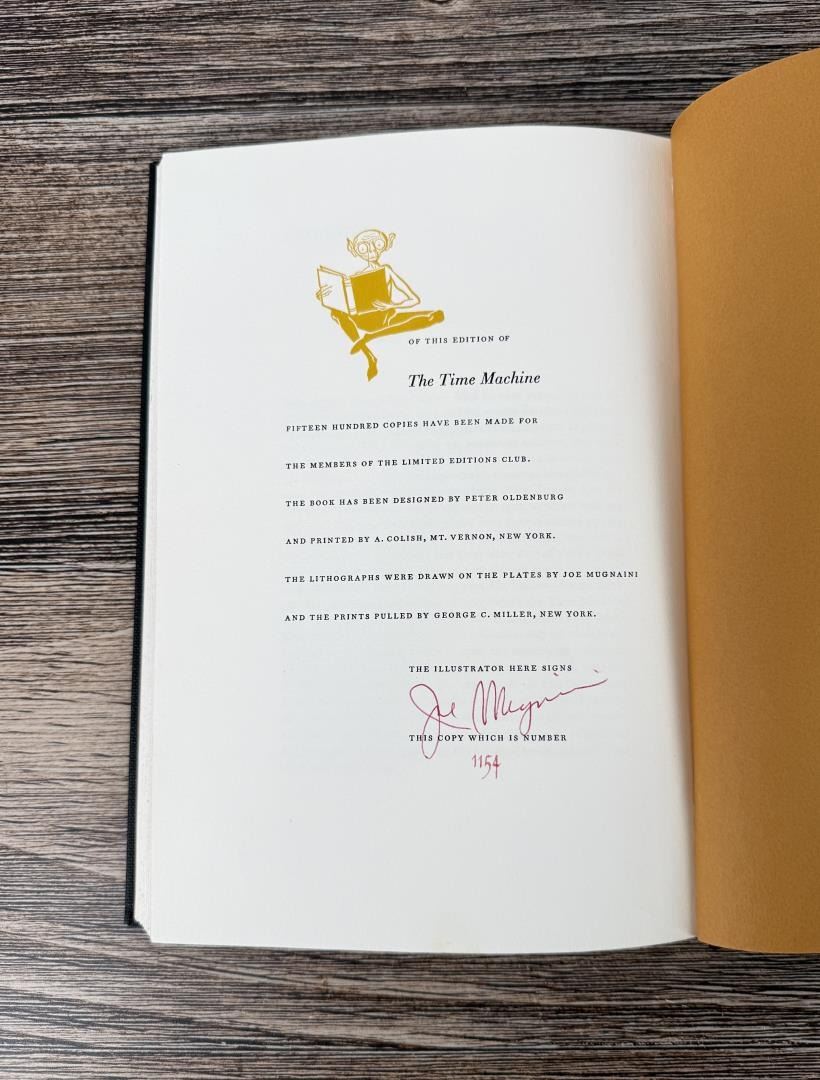 OF THIS EDITION OF
The Time Machine
FIFTEEN HUNDRED COPIES HAVE BEEN MADE FOR
THE MEMBERS OF THE LIMITED EDITIONS CLUB.
THE BOOK HAS BEEN DESIGNED BY PETER OLDENBURG
AND PRINTED BY A. COLISH, MT. VERNON, NEW YORK.
THE LITHOGRAPHS WERE DRAWN ON THE PLATES BY JOE MUGNAINI
AND THE PRINTS PULLED BY GEORGE C. MILLER, NEW YORK.
THE ILLUSTRATOR HERE SIGNS
Joe Mugnaini
THIS COPY WHICH IS NUMBER
1154